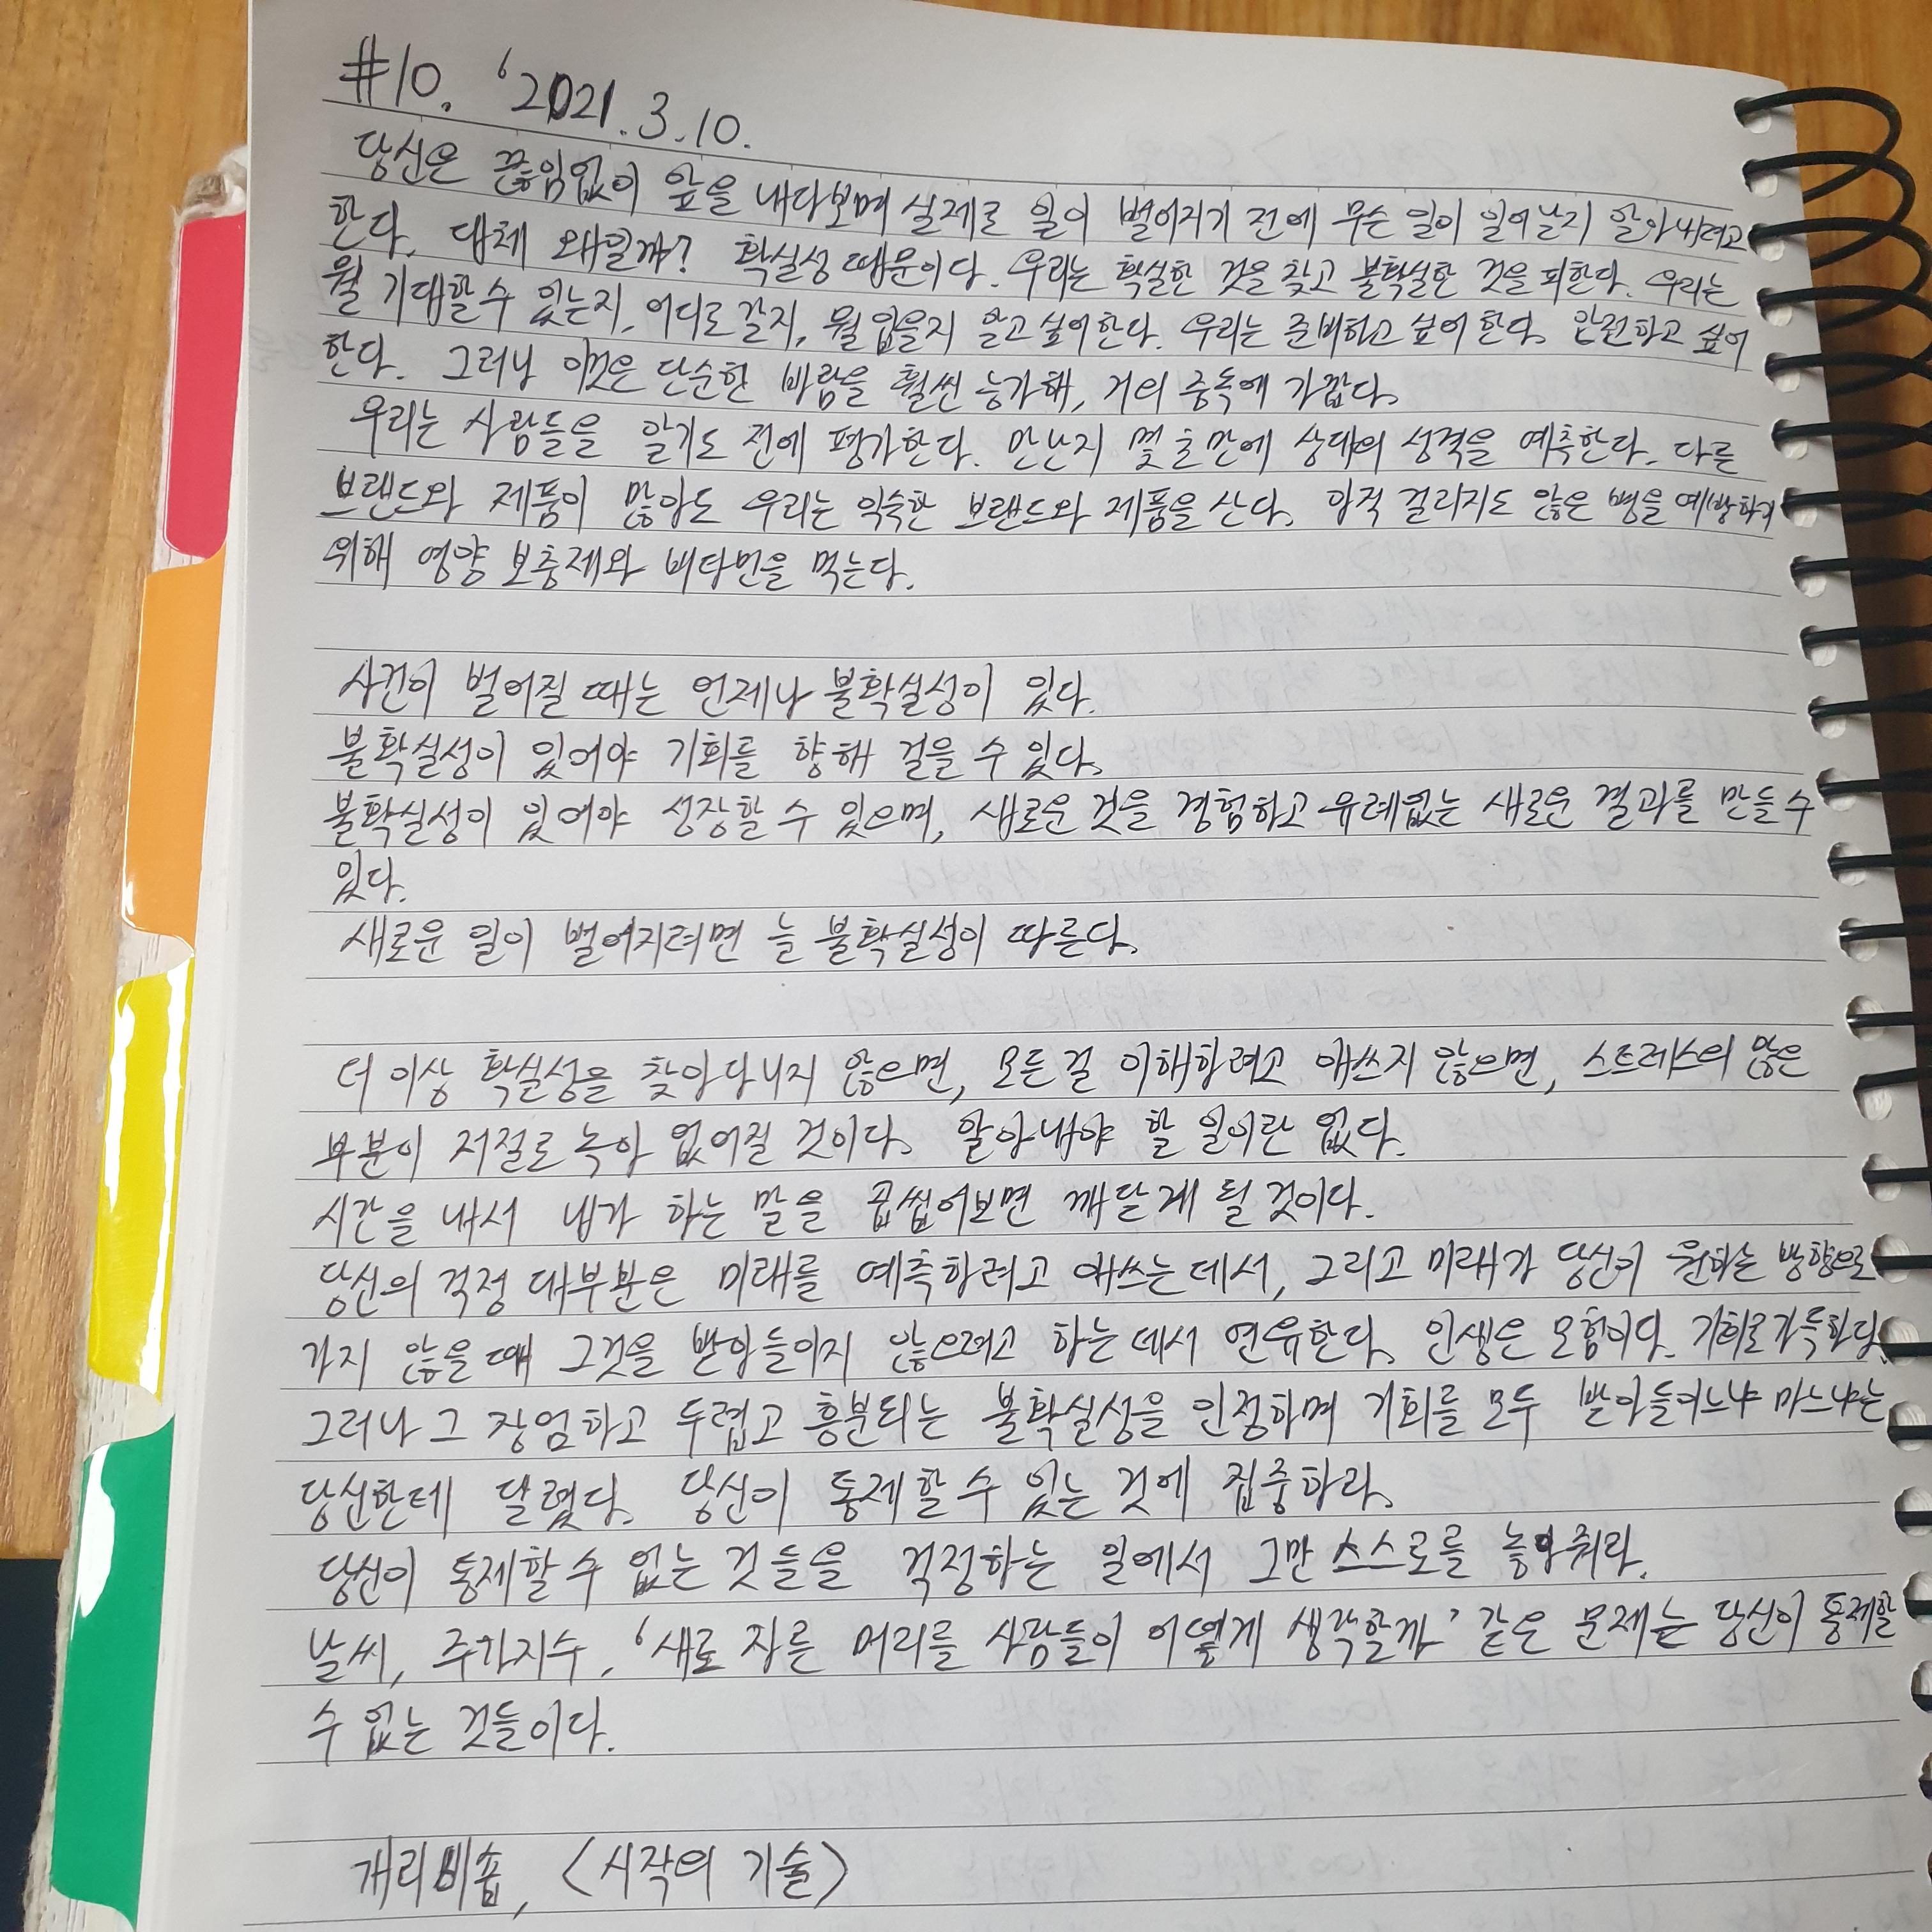 #10. '2021.3.10.
당신은 끊임없이 앞을 내다보며 실제로 일이 벌어지기 전에 무슨 일이 일어날지 알아내려고
한다. 대체 왜일까? 확실성 때문이다. 우리는 확실한 것을 찾고 불확실한 것을 피한다. 우리는
뭘 기대할 수 있는지, 어디로 갈지, 뭘 입을지 알고 싶어한다. 우리는 준비하고 싶어 한다. 안전하고 싶어
한다. 그러나 이것은 단순한 바람을 훨씬 능가해, 거의 중독에 가깝다.
우리는 사람들을 알기도 전에 평가한다. 만난지 몇 초만에 상대의 성격을 예측한다. 다른
브랜드와 제품이 많아도 우리는 익숙한 브랜드와 제품을 산다. 아직 걸리지도 않은 병을 예방하기
위해 영양 보충제와 비타민을 먹는다.
사건이 벌어질 때는 언제나 불확실성이 있다.
불확실성이 있어야 기회를 향해 걸을 수 있다.
불확실성이 있어야 성장할 수 있으며, 새로운 것을 경험하고 유례없는 새로운 결과를 만들 수
있다.
새로운 일이 벌어지려면 늘 불확실성이 따른다.
더 이상 확실성을 찾아다니지 않으면, 모든걸 이해하려고 애쓰지 않으면, 스트레스의 많은
부분이 저절로 녹아 없어질 것이다. 알아내야 할 일이란 없다.
시간을 내서 내가 하는 말을 곱씹어보면 깨닫게 될 것이다.
당신의 걱정 대부분은 미래를 예측하려고 애쓰는데서, 그리고 미래가 당신이 원하는 방향으로
가지 않을 때 그것을 받아들이지 않으려고 하는데서 연유한다. 인생은 모험이다. 기회로 가득하다.
그러나 그 장엄하고 두렵고 흥분되는 불확실성을 인정하며 기회를 모두 받아들이느냐 마느냐는
당신한테 달렸다. 당신이 통제할 수 있는 것에 집중하라.
당신이 통제할 수 없는 것들을 걱정하는 일에서 그만 스스로를 놓아줘라.
날씨, 주가지수, '새로 자른 머리를 사람들이 어떻게 생각할까' 같은 문제는 당신이 통제할
수 없는 것들이다.
개리비숍, <시작의 기술>